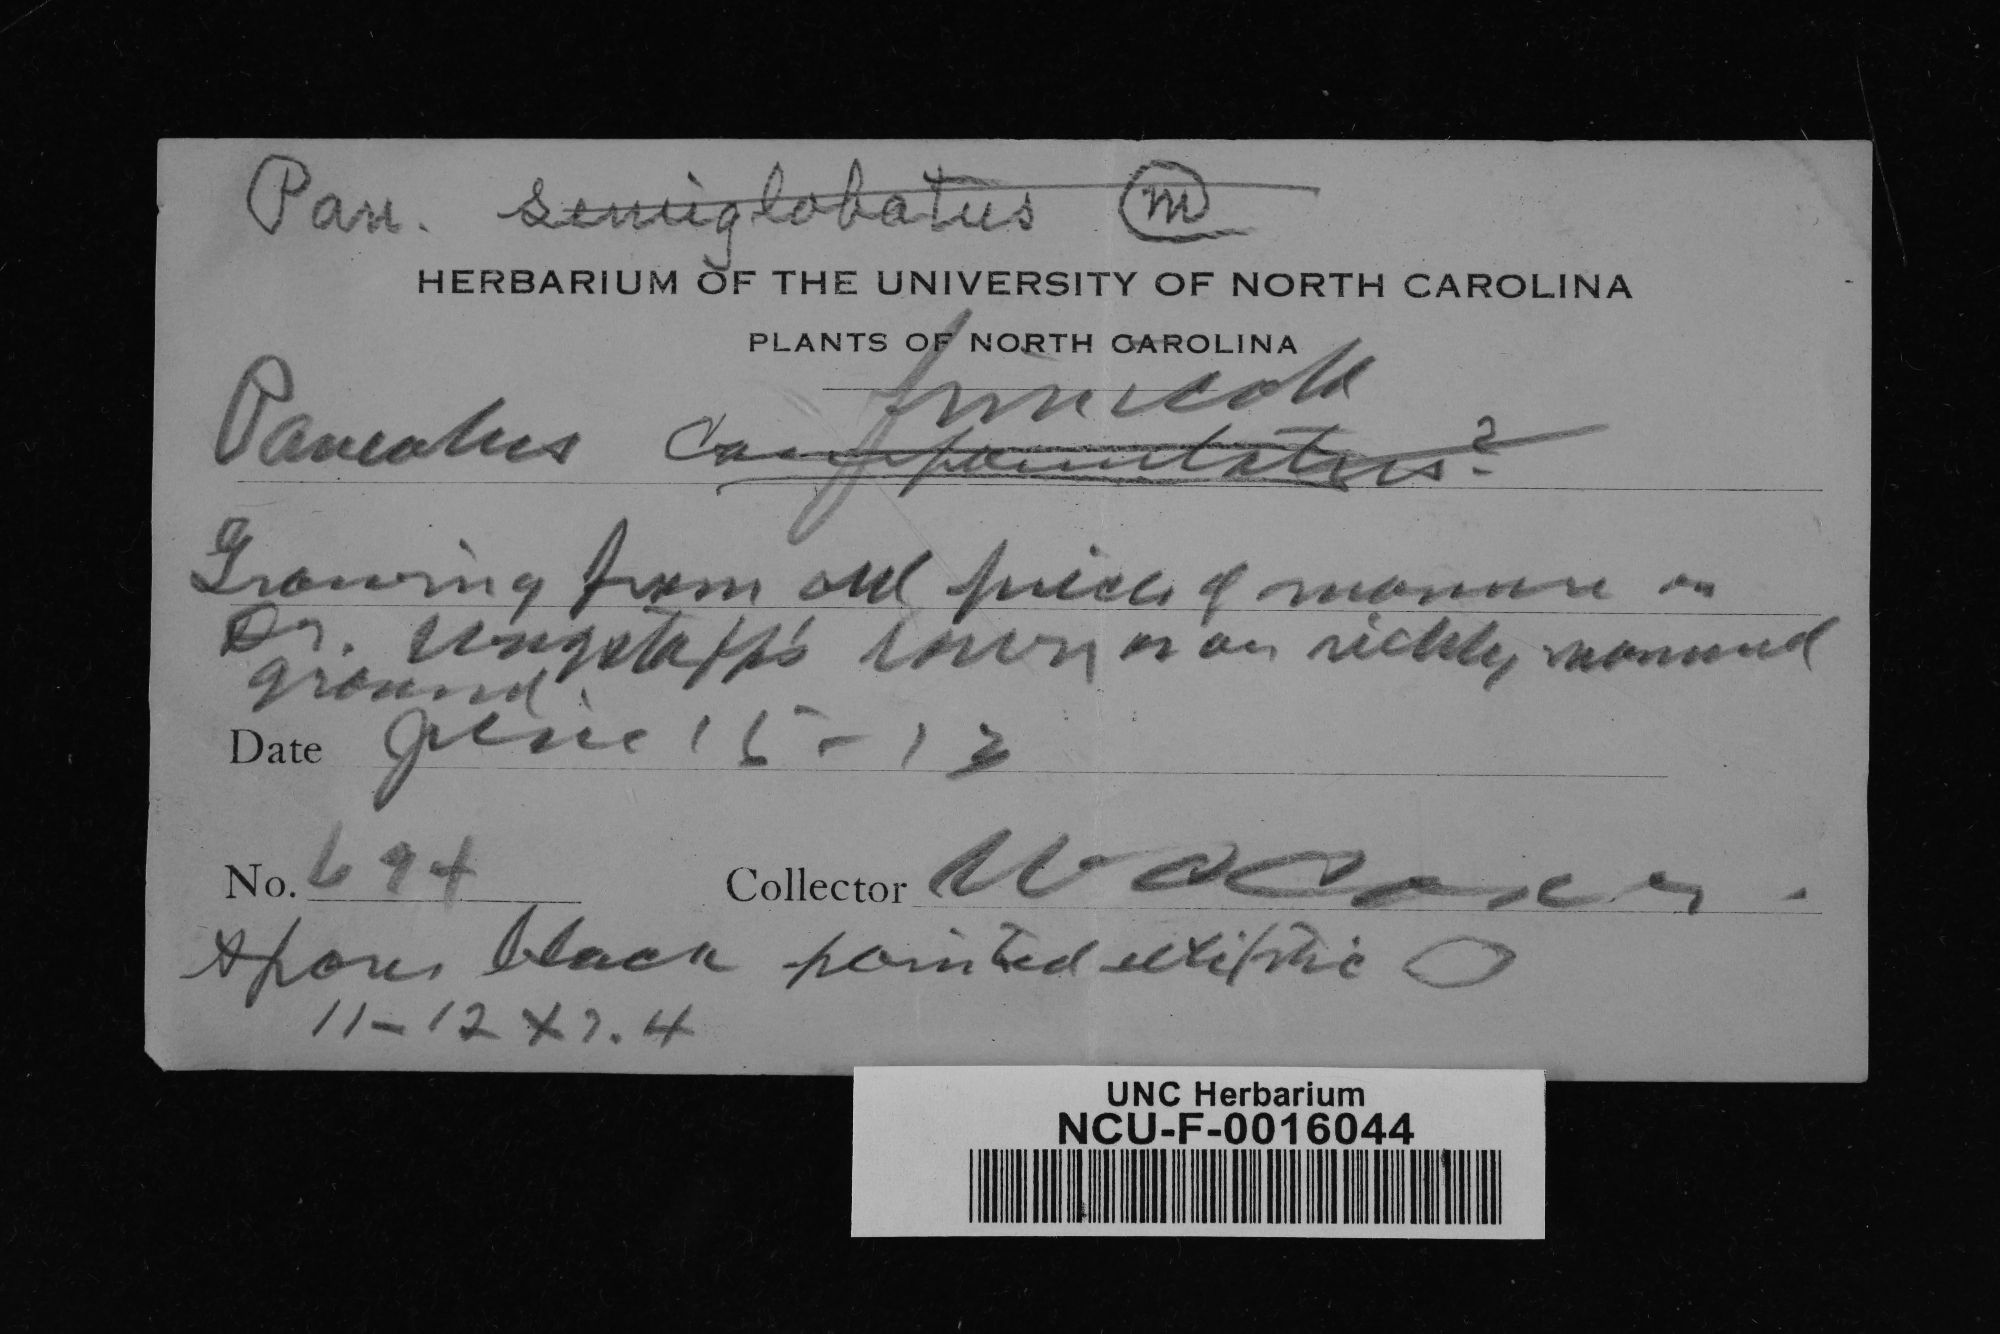 Pan. semiglobatus m
HERBARIUM OF THE UNIVERSITY OF NORTH CAROLINA
PLANTS OF NORTH CAROLINA
fimicola
Panaeolus campanulatus?
Growing from old piece of manure on
Dr. Wagstaff's lawn or on richly manured
ground
Date June 15-13
No. 694 Collector W C Coker.
Spores black pointed elliptic
11-12 x 7.4
UNC Herbarium
NCU-F-0016044